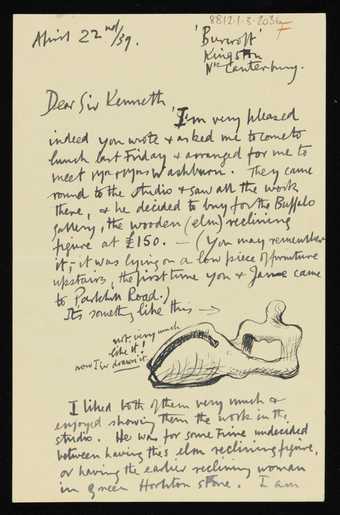 8812.1.3.2036
April 22nd/39.
'Burcroft'
Kingston
Nr Canterbury.
Dear Sir Kenneth,
I'm very pleased
indeed you wrote & asked me to come to
lunch last Friday & arranged for me to
meet Mr & Mrs Washburn. They came
round to the studio & saw all the work
there, & he decided to buy for the Buffalo
gallery, the wooden (elm) reclining
figure at £150. — (You may remember
it, – it was lying on a low piece of furniture
upstairs, the first time you & Jane came
to Parkhill Road.)
Its something like this →
not very much
like it,
now I've drawn it
I liked both of them very much &
enjoyed showing them the work in the
studio. He was for some time undecided
between having this elm reclining figure,
or having the earlier reclining woman
in green Hornton stone. I am